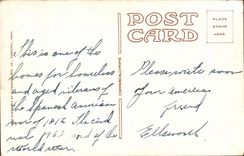 POST CARD
PLACE
STAMP
HERE
This is one of the
homes for homeless
and aged veterans of
the Spanish American
war of 1812 The civil
war 1863 and of the
world war.
Please write soon
your American
friend
Ellsworth